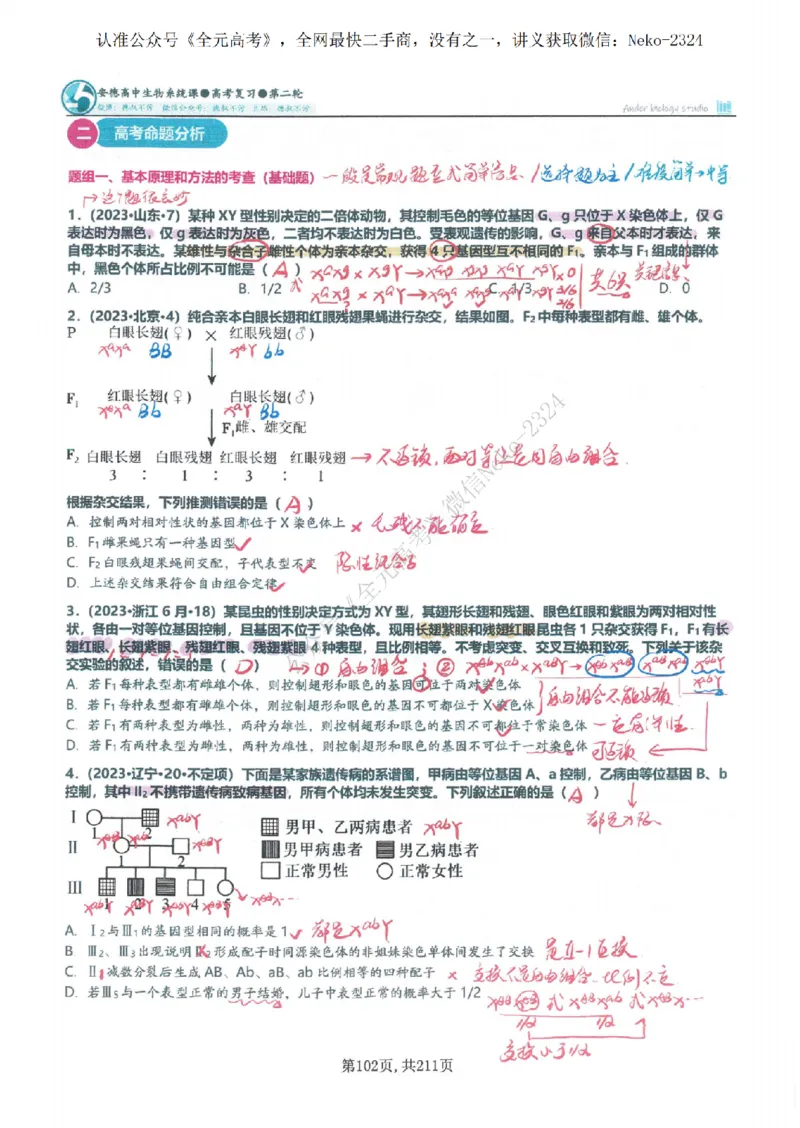 认准公众号《全元高考》，全网最快二手商，没有之一，讲义获取微信：Neko-2324
安德高中生物系统课●高考复习●第二轮
Ander biology studio
二 高考命题分析
题组一、基本原理和方法的考查（基础题）一般是常规题型或简单信息 / 选择题为主 / 难度简单→中等
1.（2023•山东•7）某种 XY 型性别决定的二倍体动物，其控制毛色的等位基因 G、g 只位于 X 染色体上，仅 G
表达时为黑色，仅 g 表达时为灰色，二者均不表达时为白色。受表观遗传的影响，G、g 来自父本时才表达，来
自母本时不表达。某雄性与杂合子雌性个体为亲本杂交，获得 4 只基因型互不相同的 F₁。亲本与 F₁ 组成的群体
中，黑色个体所占比例不可能是（ A ）
A. 2/3 B. 1/2 C. 1/3 D. 0
共6只
2.（2023•北京•4）纯合亲本白眼长翅和红眼残翅果蝇进行杂交，结果如图。F₂ 中每种表型都有雌、雄个体。
P 白眼长翅(♀) × 红眼残翅(♂)
BB bb
F₁ 红眼长翅(♀) 白眼长翅(♂)
Bb Bb
F₁雌、雄交配
F₂ 白眼长翅 白眼残翅 红眼长翅 红眼残翅 → 不连锁，两对等位基因自由组合
3 : 1 : 3 : 1
根据杂交结果，下列推测错误的是（ A ）
A. 控制两对相对性状的基因都位于 X 染色体上 ×
B. F₁ 雌果蝇只有一种基因型 ✓
C. F₂ 白眼残翅果蝇间交配，子代表型不变 ✓ 隐性纯合子
D. 上述杂交结果符合自由组合定律 ✓
3.（2023•浙江 6 月•18）某昆虫的性别决定方式为 XY 型，其翅形长翅和残翅、眼色红眼和紫眼为两对相对性
状，各由一对等位基因控制，且基因不位于 Y 染色体。现用长翅紫眼和残翅红眼昆虫各 1 只杂交获得 F₁，F₁ 有长
翅红眼、长翅紫眼、残翅红眼、残翅紫眼 4 种表型，且比例相等。不考虑突变、交叉互换和致死。下列关于该杂
交实验的叙述，错误的是（ D ） → ① 自由组合；②
A. 若 F₁ 每种表型都有雌雄个体，则控制翅形和眼色的基因可位于两对染色体
B. 若 F₁ 每种表型都有雌雄个体，则控制翅形和眼色的基因不可都位于 X 染色体 自由组合不能连锁
C. 若 F₁ 有两种表型为雌性，两种为雄性，则控制翅形和眼色的基因不可都位于常染色体 一定有伴性
D. 若 F₁ 有两种表型为雄性，两种为雌性，则控制翅形和眼色的基因不可位于一对染色体 可连锁
4.（2023•辽宁•20•不定项）下面是某家族遗传病的系谱图，甲病由等位基因 A、a 控制，乙病由等位基因 B、b
控制，其中 II₂ 不携带遗传病致病基因，所有个体均未发生突变。下列叙述正确的是（ A ）
I
1 2
II
1 2
III
1 2 3 4 5
男甲、乙两病患者
男甲病患者 男乙病患者
正常男性 正常女性
A. Ⅰ₂ 与Ⅲ₁ 的基因型相同的概率是 1 ✓
B Ⅲ₂、Ⅲ₃ 出现说明 形成配子时同源染色体的非姐妹染色单体间发生了交换
C. Ⅱ₁ 减数分裂后生成 AB、Ab、aB、ab 比例相等的四种配子 × 交换不是自由组合，比例不定
D. 若Ⅲ₅ 与一个表型正常的男子结婚，儿子中表型正常的概率大于 1/2
1/2 1/2
交换小于1/2
第102页,共211页